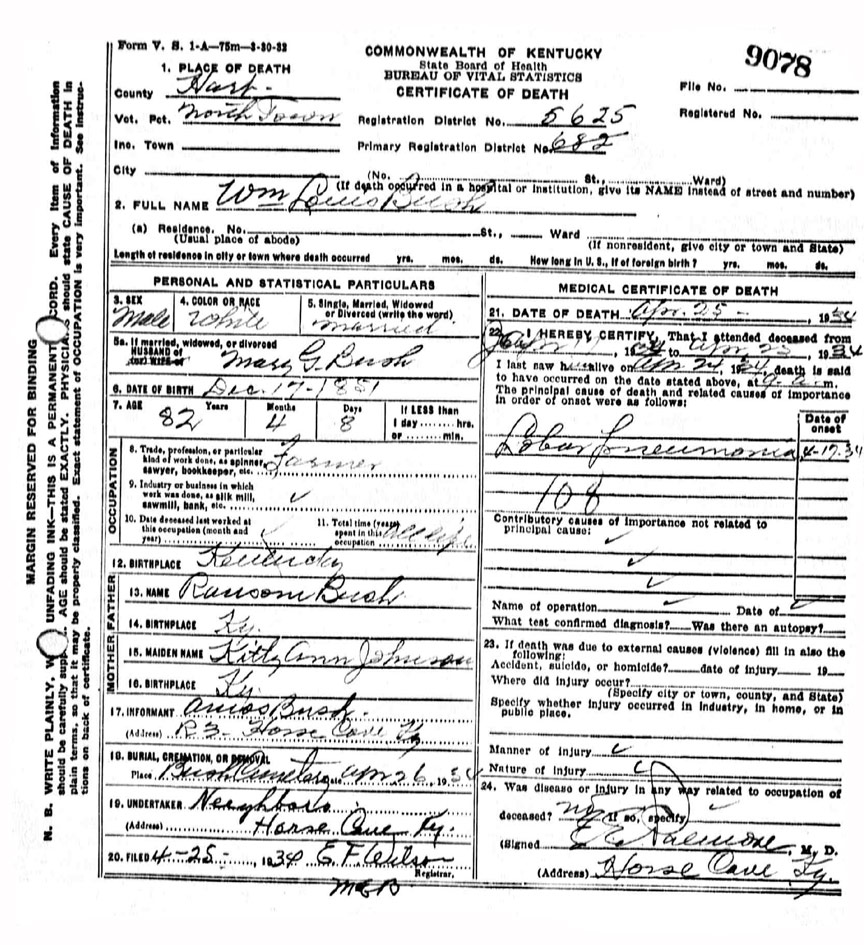 Form V. S. 1-A—75m—3-30-32
COMMONWEALTH OF KENTUCKY
State Board of Health
BUREAU OF VITAL STATISTICS
CERTIFICATE OF DEATH
9078
File No.
Registered No.
1. PLACE OF DEATH
County Hart
Vot. Pct. North Town
Registration District No. 5625
Inc. Town
Primary Registration District No. 682
City
(No. St., Ward)
(If death occurred in a hospital or institution, give its NAME instead of street and number)
2. FULL NAME Wm Louis Bush
(a) Residence. No. St., Ward
(Usual place of abode) (If nonresident, give city or town and State)
Length of residence in city or town where death occurred yrs. mos. ds. How long in U. S., if of foreign birth? yrs. mos. ds.
PERSONAL AND STATISTICAL PARTICULARS
3. SEX 4. COLOR OR RACE 5. Single, Married, Widowed
or Divorced (write the word)
Male White married
5a. If married, widowed, or divorced
HUSBAND of
(or) WIFE of Mary G. Bush
6. DATE OF BIRTH Dec. 17-1851
7. AGE Years Months Days If LESS than
82 4 8 1 day hrs.
or min.
OCCUPATION
8. Trade, profession, or particular
kind of work done, as spinner,
sawyer, bookkeeper, etc. Farmer
9. Industry or business in which
work was done, as silk mill,
sawmill, bank, etc. ✓
10. Date deceased last worked at
this occupation (month and
year) ✓
11. Total time (years)
spent in this
occupation all life
12. BIRTHPLACE Kentucky
FATHER
13. NAME Ransom Bush
14. BIRTHPLACE Ky.
MOTHER
15. MAIDEN NAME Kitty Ann Johnson
16. BIRTHPLACE Ky
17. INFORMANT Amos Bush
(Address) R3- Horse Cave Ky
18. BURIAL, CREMATION, OR REMOVAL
Place Bush Cemetary Date Apr 26, 1934
19. UNDERTAKER Neighbors
(Address) Horse Cave Ky.
20. FILED 4-25-, 1934 E. F. Wilson
Registrar.
MEDICAL CERTIFICATE OF DEATH
21. DATE OF DEATH Apr. 25-, 1934
22. I HEREBY CERTIFY, That I attended deceased from
1934 to Apr 25, 1934
I last saw h alive on Apr 24, 1934, death is said
to have occurred on the date stated above, at m.
The principal cause of death and related causes of importance
in order of onset were as follows:
Date of
onset
Lobar Pneumonia 4-17-34
108
Contributory causes of importance not related to
principal cause: ✓
✓
✓
Name of operation Date of ✓
What test confirmed diagnosis? Was there an autopsy?
23. If death was due to external causes (violence) fill in also the
following:
Accident, suicide, or homicide? date of injury 19
Where did injury occur?
(Specify city or town, county, and State)
Specify whether injury occurred in industry, in home, or in
public place.
Manner of injury ✓
Nature of injury ✓
24. Was disease or injury in any way related to occupation of
deceased? no If so, specify
(Signed M. D.
(Address) Horse Cave Ky.
MARGIN RESERVED FOR BINDING
N. B. WRITE PLAINLY, UNFADING INK—THIS IS A PERMANENT CORD. Every item of information
should be carefully AGE should be stated EXACTLY. should state CAUSE OF DEATH in
plain terms, so that it may be properly classified. Exact statement of OCCUPATION is very important. See instruc-
tions on back of certificate.